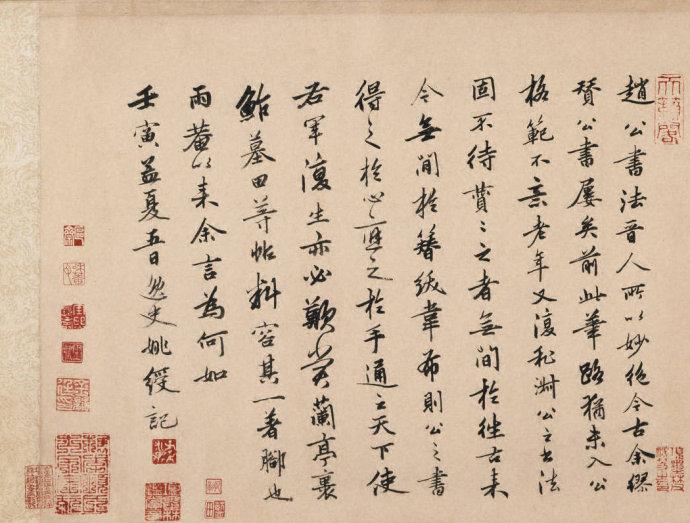 趙公書法晉人所以妙絕今古余繆
賛公書屢矣前此華路猶未入公
格範不意老年又復私淑公之書法
固不待賛賛之者無間於往古来
今無間於簪紱韋布則公之書
得之於心應之於手通之天下使
右軍復生亦必歎賞蘭亭裹
鮓墓田等帖料容其一著腳也
雨菴以来余言為何如
壬寅孟夏五日逸史姚綬記